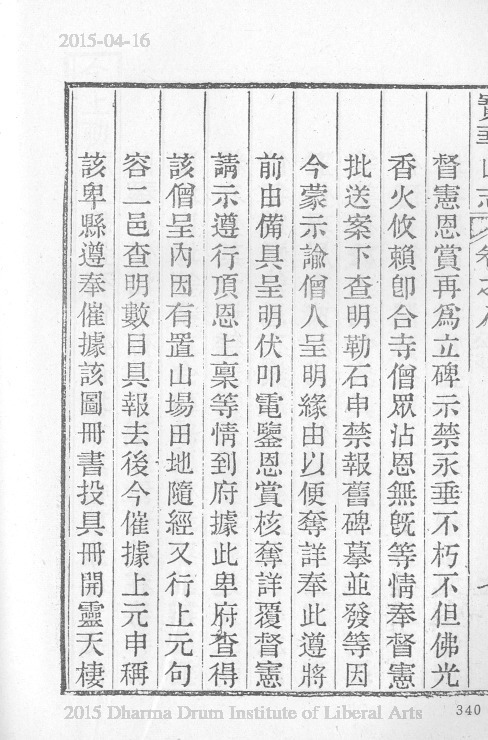 2015-04-16
寶華山志 卷之八
督憲恩賞再爲立碑示禁永垂不朽不但佛光
香火攸賴卽合寺僧眾沾恩無旣等情奉督憲
批送案下查明勒石申禁報舊碑摹並發等因
今蒙示諭僧人呈明緣由以便奪詳奉此遵將
前由備具呈明伏叩電鑒恩賞核奪詳覆督憲
請示遵行頂恩上稟等情到府據此卑府查得
該僧呈內因有置山塲田地隨經又行上元句
容二邑查明數目具報去後今催據上元申稱
該卑縣遵奉催據該圖冊書投具冊開靈天棲
340
2015 Dharma Drum Institute of Liberal Arts